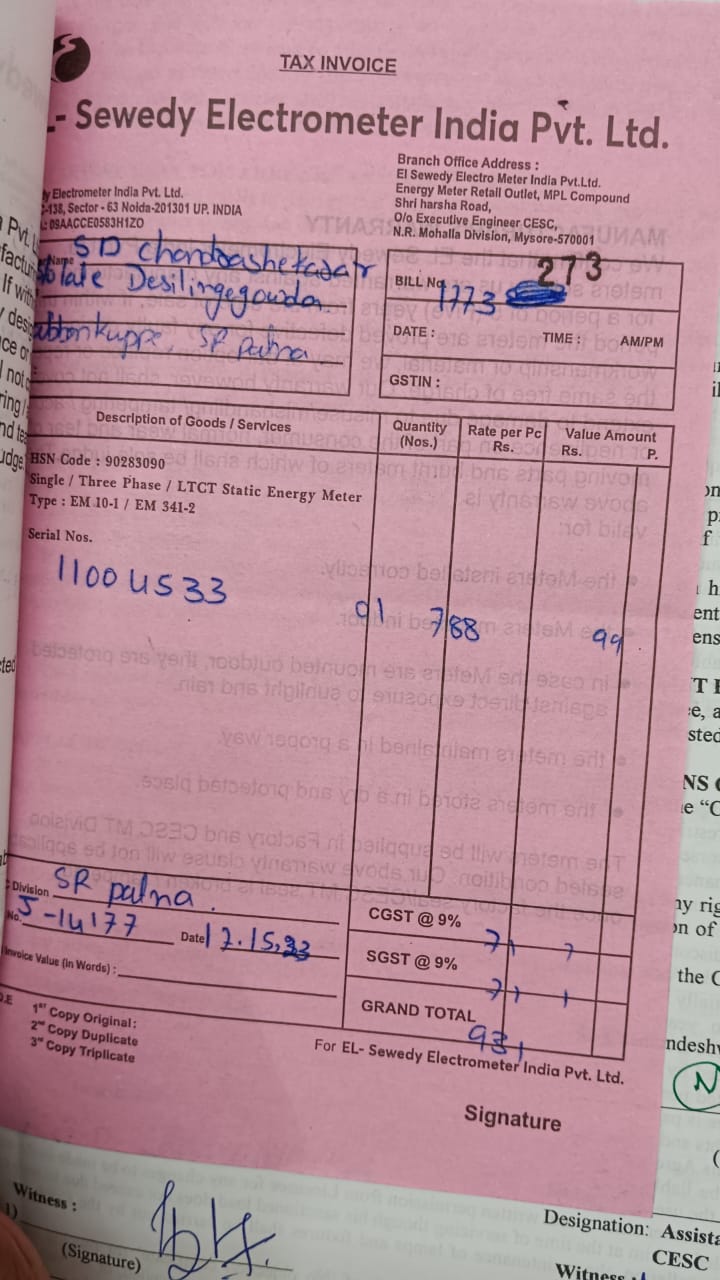 TAX INVOICE
- Sewedy Electrometer India Pvt. Ltd.
Branch Office Address :
El Sewedy Electro Meter India Pvt.Ltd.
Energy Meter Retail Outlet, MPL Compound
Shri harsha Road,
O/o Executive Engineer CESC,
N.R. Mohalla Division, Mysore-570001
y Electrometer India Pvt. Ltd.
-138, Sector - 63 Noida-201301 UP. INDIA
: 09AACCE0583H1ZO
Name SD
late Desilingegowda
SR patna
273
BILL No. 1773
DATE : TIME : AM/PM
GSTIN :
Description of Goods / Services Quantity (Nos.) Rate per Pc Rs. Value Amount Rs. P.
HSN Code : 90283090
Single / Three Phase / LTCT Static Energy Meter
Type : EM 10-1 / EM 341-2
Serial Nos.
11004533 01 788 99
Division SR patna.
No. J-14177 Date
Invoice Value (in Words) :
CGST @ 9% 71
SGST @ 9% 71
GRAND TOTAL 931
1st Copy Original :
2nd Copy Duplicate
3rd Copy Triplicate
For EL- Sewedy Electrometer India Pvt. Ltd.
Signature
Witness :
1)
(Signature)
Designation: Assista
CESC
Witness
the C
ndeshw
N